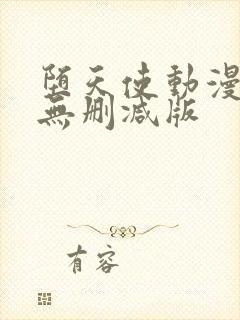 堕天使動漫
無刪減版
有容